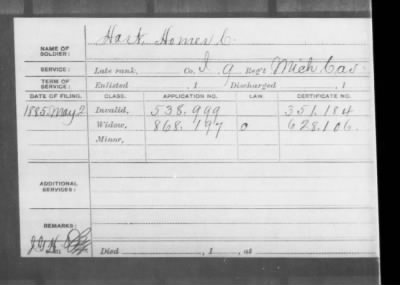 NAME OF SOLDIER: Hart, Homer C.
SERVICE: Late rank, Co. I 9 Reg't Mich Cav
TERM OF SERVICE: Enlisted , 1 Discharged , 1
DATE OF FILING. CLASS. APPLICATION NO. LAW. CERTIFICATE NO.
1885 May 2 Invalid, 538.999 351.184
Widow, 868.197 628.106
Minor,
ADDITIONAL SERVICES:
REMARKS:
Died , 1 , at